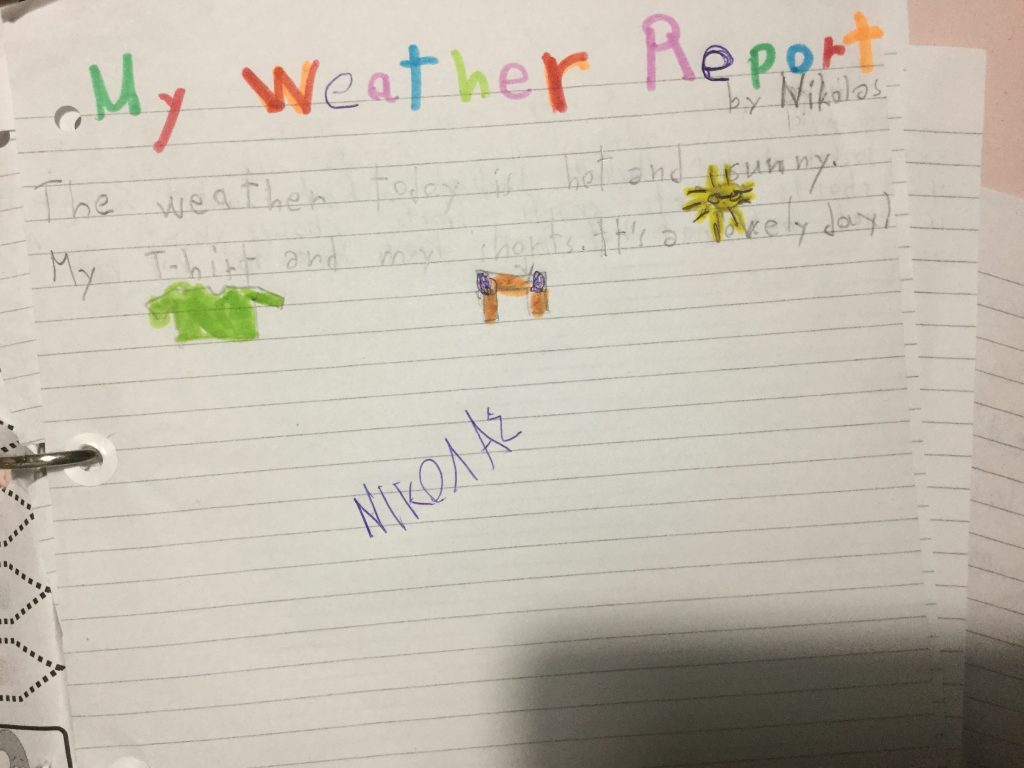 My Weather Report
by Nikolas
The weather today is hot and sunny.
My T-hirt and my shorts. It's a lovely day!
ΝΙΚΟΛΑΣ